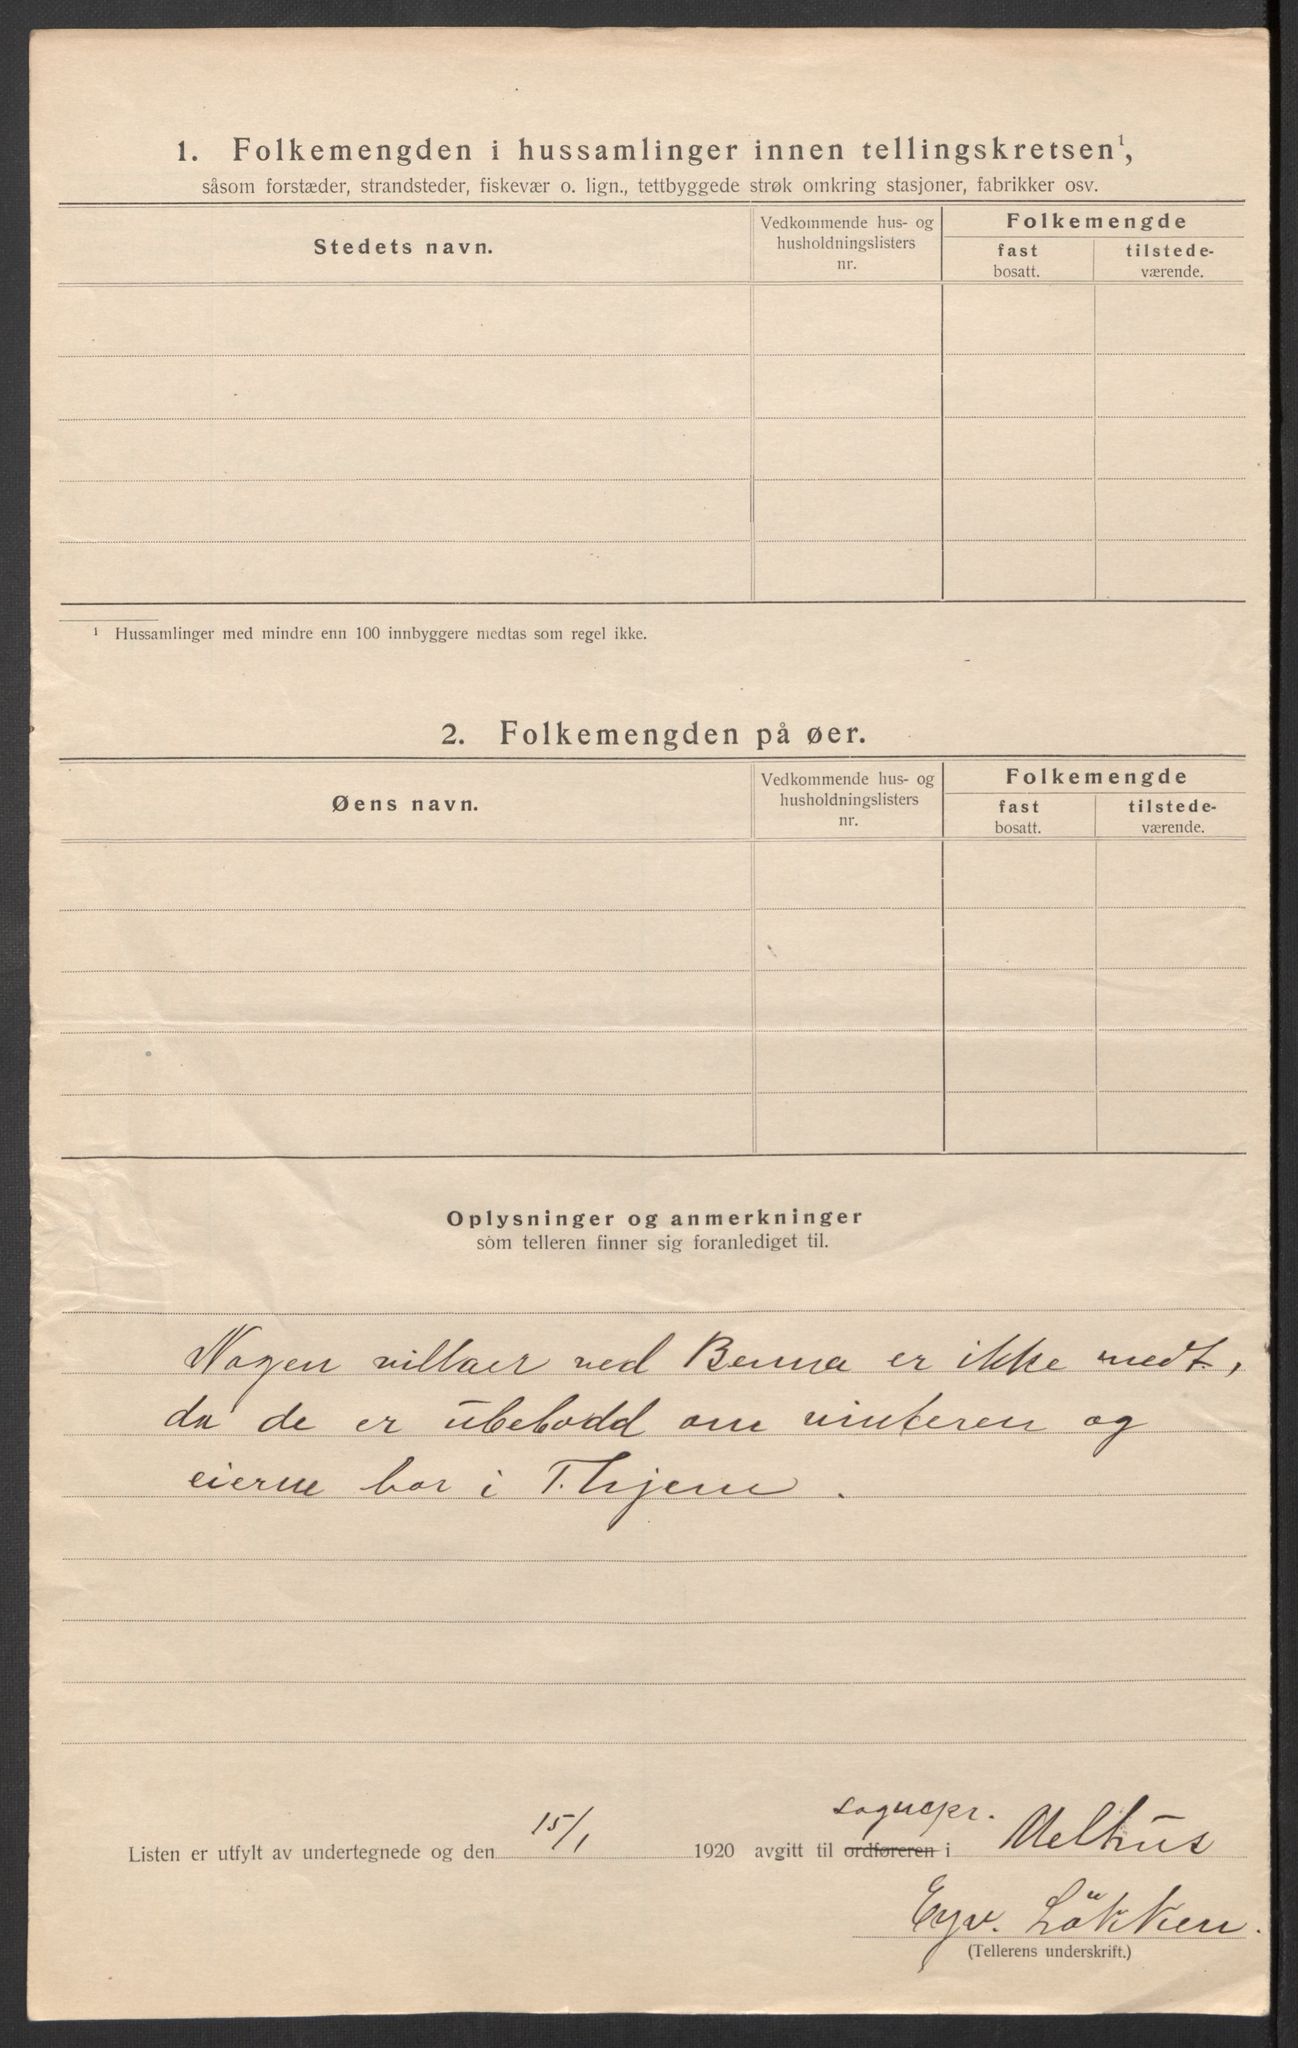 1. Folkemengden i hussamlinger innen tellingskretsen¹,
såsom forstæder, strandsteder, fiskevær o. lign., tettbyggede strøk omkring stasjoner, fabrikker osv.
Stedets navn.
Vedkommende hus- og
husholdningslisters
nr.
Folkemengde
fast
bosatt.
tilstede-
værende.
¹ Hussamlinger med mindre enn 100 innbyggere medtas som regel ikke.
2. Folkemengden på øer.
Øens navn.
Vedkommende hus- og
husholdningslisters
nr.
Folkemengde
fast
bosatt.
tilstede-
værende.
Oplysninger og anmerkninger
som telleren finner sig foranlediget til.
Nogen villaer ved Benna er ikke medt,
da de er ubebodd om vinteren og
eierne bor i T.hjem.
sognepr.
Listen er utfylt av undertegnede og den 15/1 1920 avgitt til ordføreren i Melhus
Eyv. Løkken.
(Tellerens underskrift.)